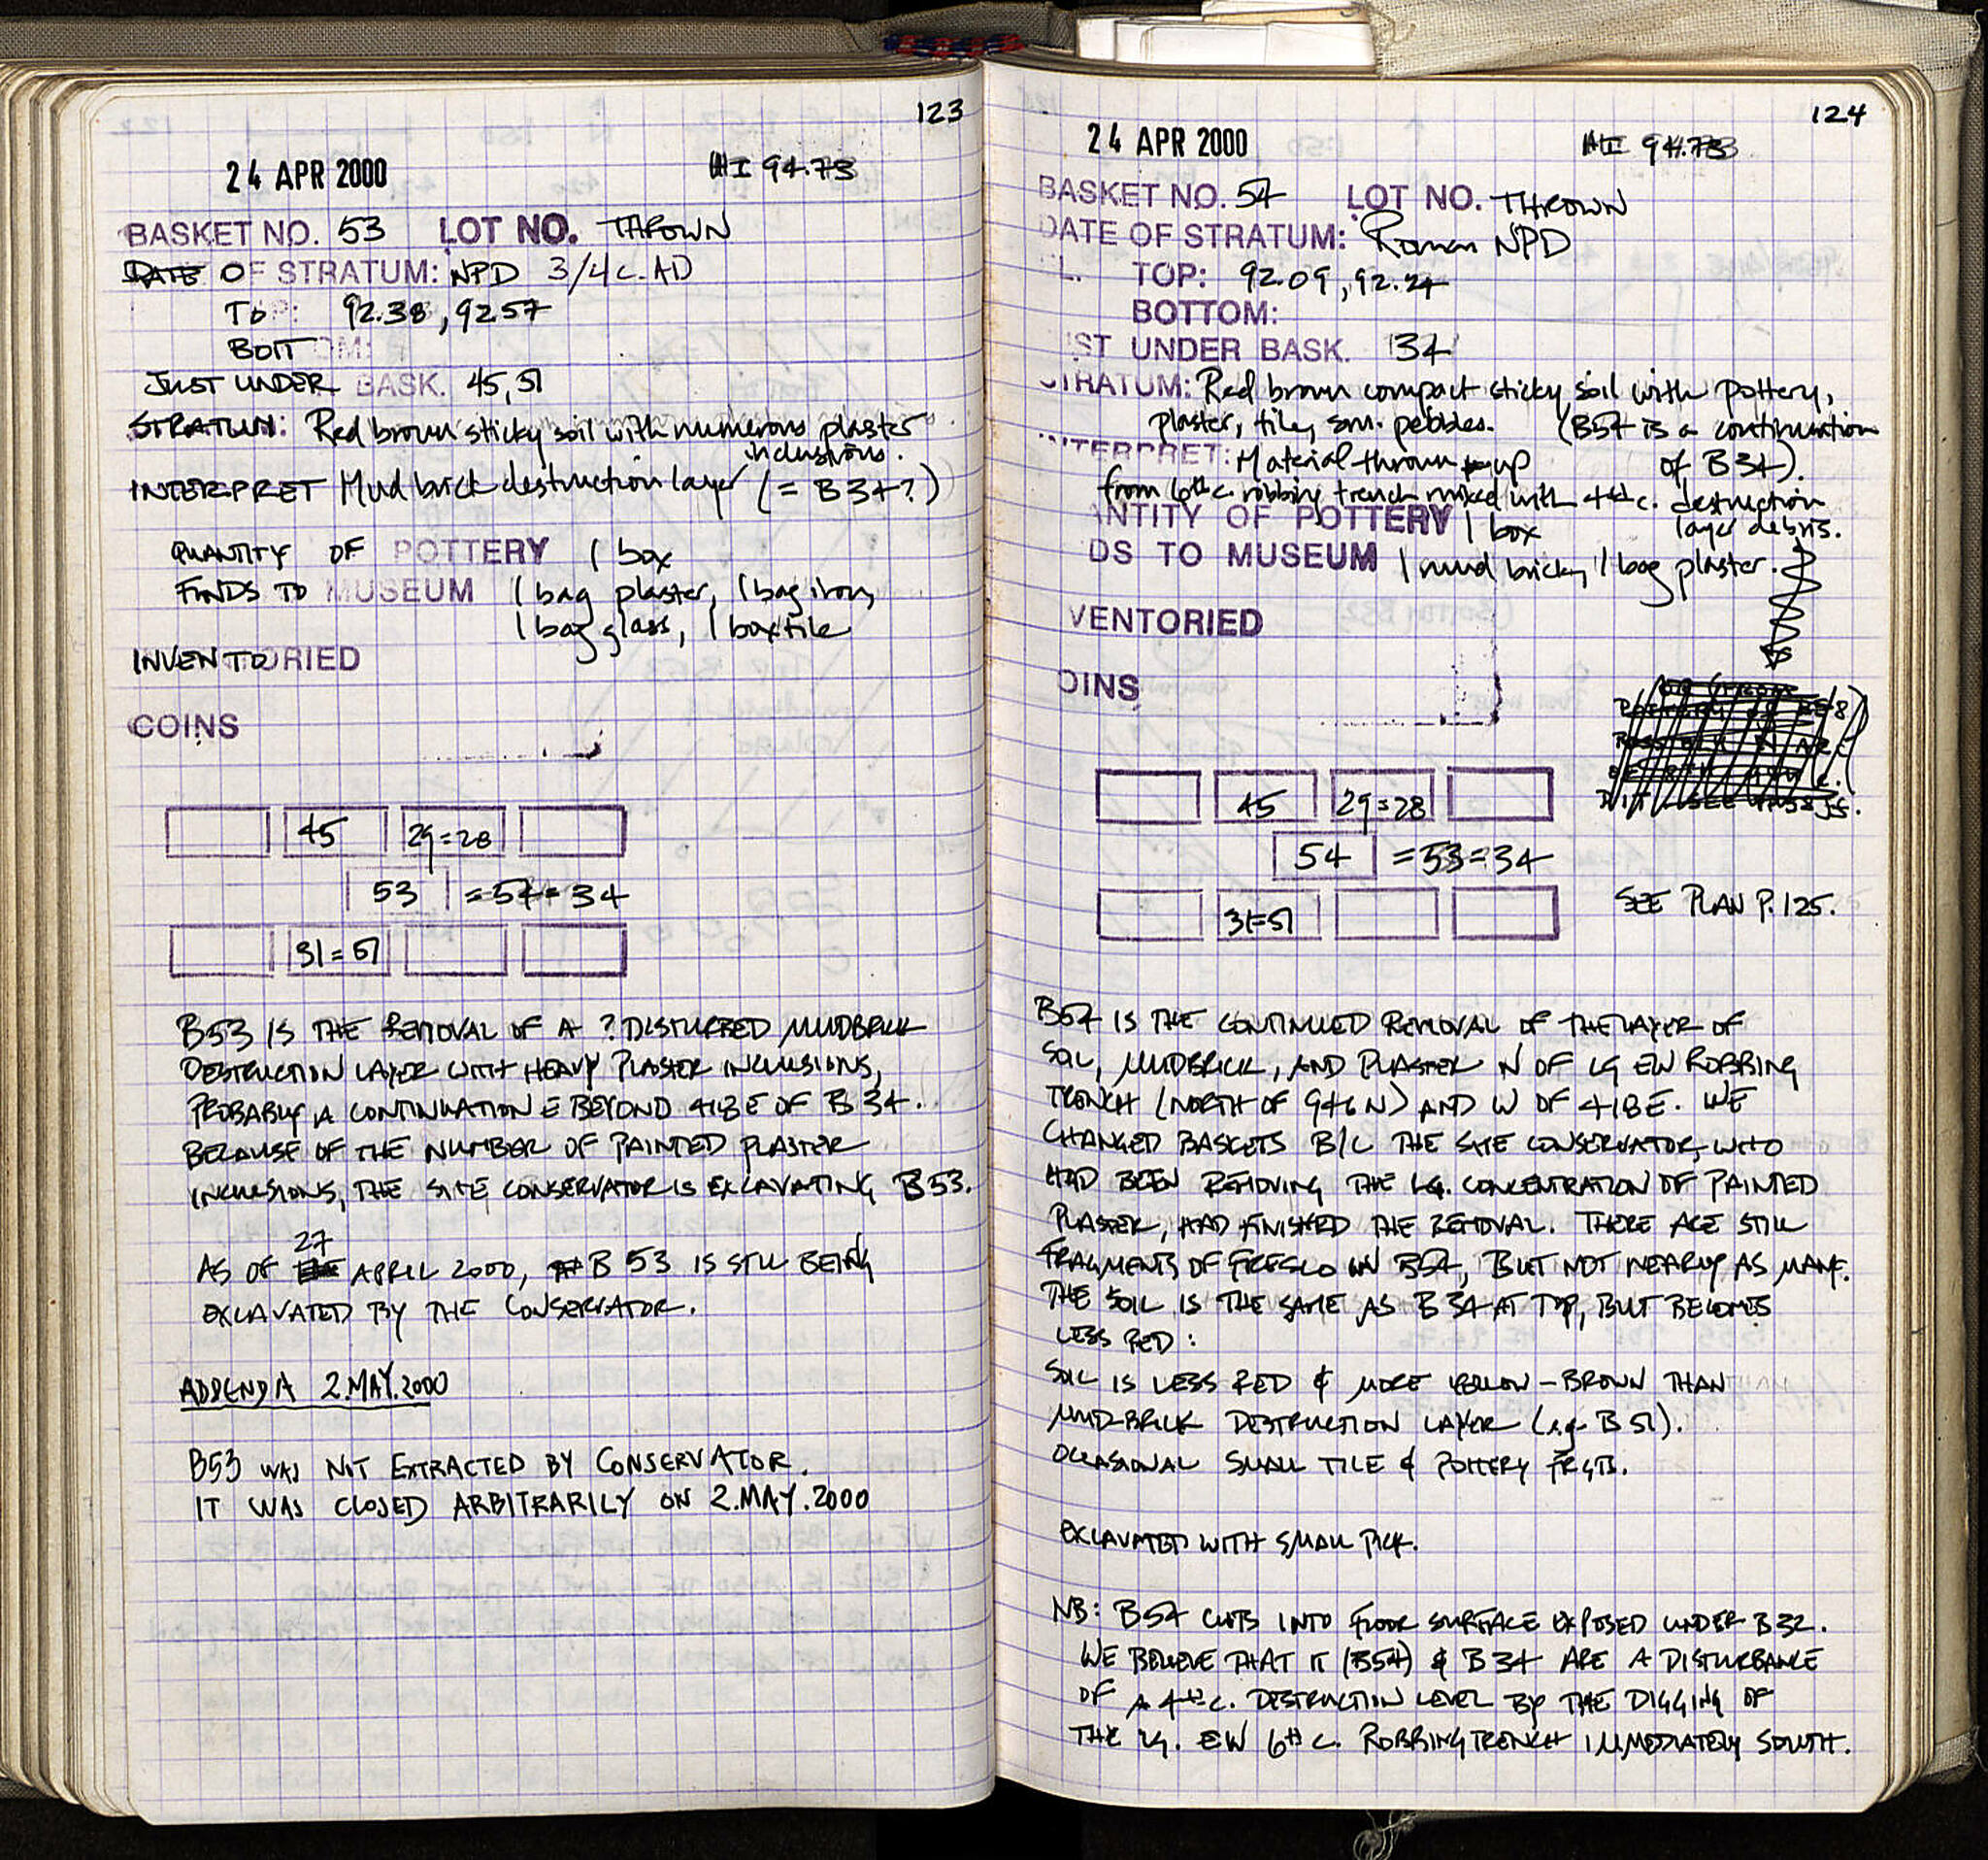 123
24 APR 2000 HI 94.73
BASKET NO. 53 LOT NO. THROWN
DATE OF STRATUM: NPD 3/4c. AD
TOP: 92.38, 92.57
BOTTOM:
JUST UNDER BASK. 45, 51
STRATUM: Red brown sticky soil with numerous plaster
inclusions.
INTERPRET Mud brick destruction layer (= B34?)
QUANTITY OF POTTERY 1 box
FINDS TO MUSEUM 1 bag plaster, 1 bag iron,
1 bag glass, 1 box tile
INVENTORIED
COINS
45 29=28
53 =54=34
31=51
B53 IS THE REMOVAL OF A ? DISTURBED MUDBRICK
DESTRUCTION LAYER WITH HEAVY PLASTER INCLUSIONS,
PROBABLY A CONTINUATION E BEYOND 418E OF B34.
BECAUSE OF THE NUMBER OF PAINTED PLASTER
INCLUSIONS, THE SITE CONSERVATOR IS EXCAVATING B53.
27
AS OF APRIL 2000, B 53 IS STILL BEING
EXCAVATED BY THE CONSERVATOR.
ADDENDA 2.MAY.2000
B53 WAS NOT EXTRACTED BY CONSERVATOR.
IT WAS CLOSED ARBITRARILY ON 2.MAY.2000
124
24 APR 2000 HI 94.73
BASKET NO. 54 LOT NO. THROWN
DATE OF STRATUM: Roman NPD
L. TOP: 92.09, 92.24
BOTTOM:
ST UNDER BASK. 34
STRATUM: Red brown compact sticky soil with pottery,
plaster, tile, sm. pebbles. (B54 is a continuation
of B34).
INTERPRET: Material thrown up
from 6th c. robbing trench mixed with 4th c. destruction
layer debris.
ANTITY OF POTTERY 1 box
DS TO MUSEUM 1 mud brick, 1 bag plaster.
VENTORIED
OINS
45 29=28
54 =53=34
31=51
SEE PLAN P. 125.
B54 IS THE CONTINUED REMOVAL OF THE LAYER OF
SOIL, MUDBRICK, AND PLASTER N OF LG EW ROBBING
TRENCH (NORTH OF 946 N) AND W OF 418E. WE
CHANGED BASKETS B/C THE SITE CONSERVATOR, WHO
HAD BEEN REMOVING THE LG. CONCENTRATION OF PAINTED
PLASTER, HAD FINISHED THE REMOVAL. THERE ARE STILL
FRAGMENTS OF FRESCO IN B54, BUT NOT NEARLY AS MANY.
THE SOIL IS THE SAME AS B34 AT TOP, BUT BECOMES
LESS RED:
SOIL IS LESS RED & MORE YELLOW-BROWN THAN
MUD-BRICK DESTRUCTION LAYER (e.g. B 51).
OCCASIONAL SMALL TILE & POTTERY FRGTS.
EXCAVATED WITH SMALL PICK.
NB: B54 CUTS INTO FLOOR SURFACE EXPOSED UNDER B32.
WE BELIEVE THAT IT (B54) & B34 ARE A DISTURBANCE
OF A 4th c. DESTRUCTION LEVEL BY THE DIGGING OF
THE LG. EW 6th C. ROBBING TRENCH IMMEDIATELY SOUTH.